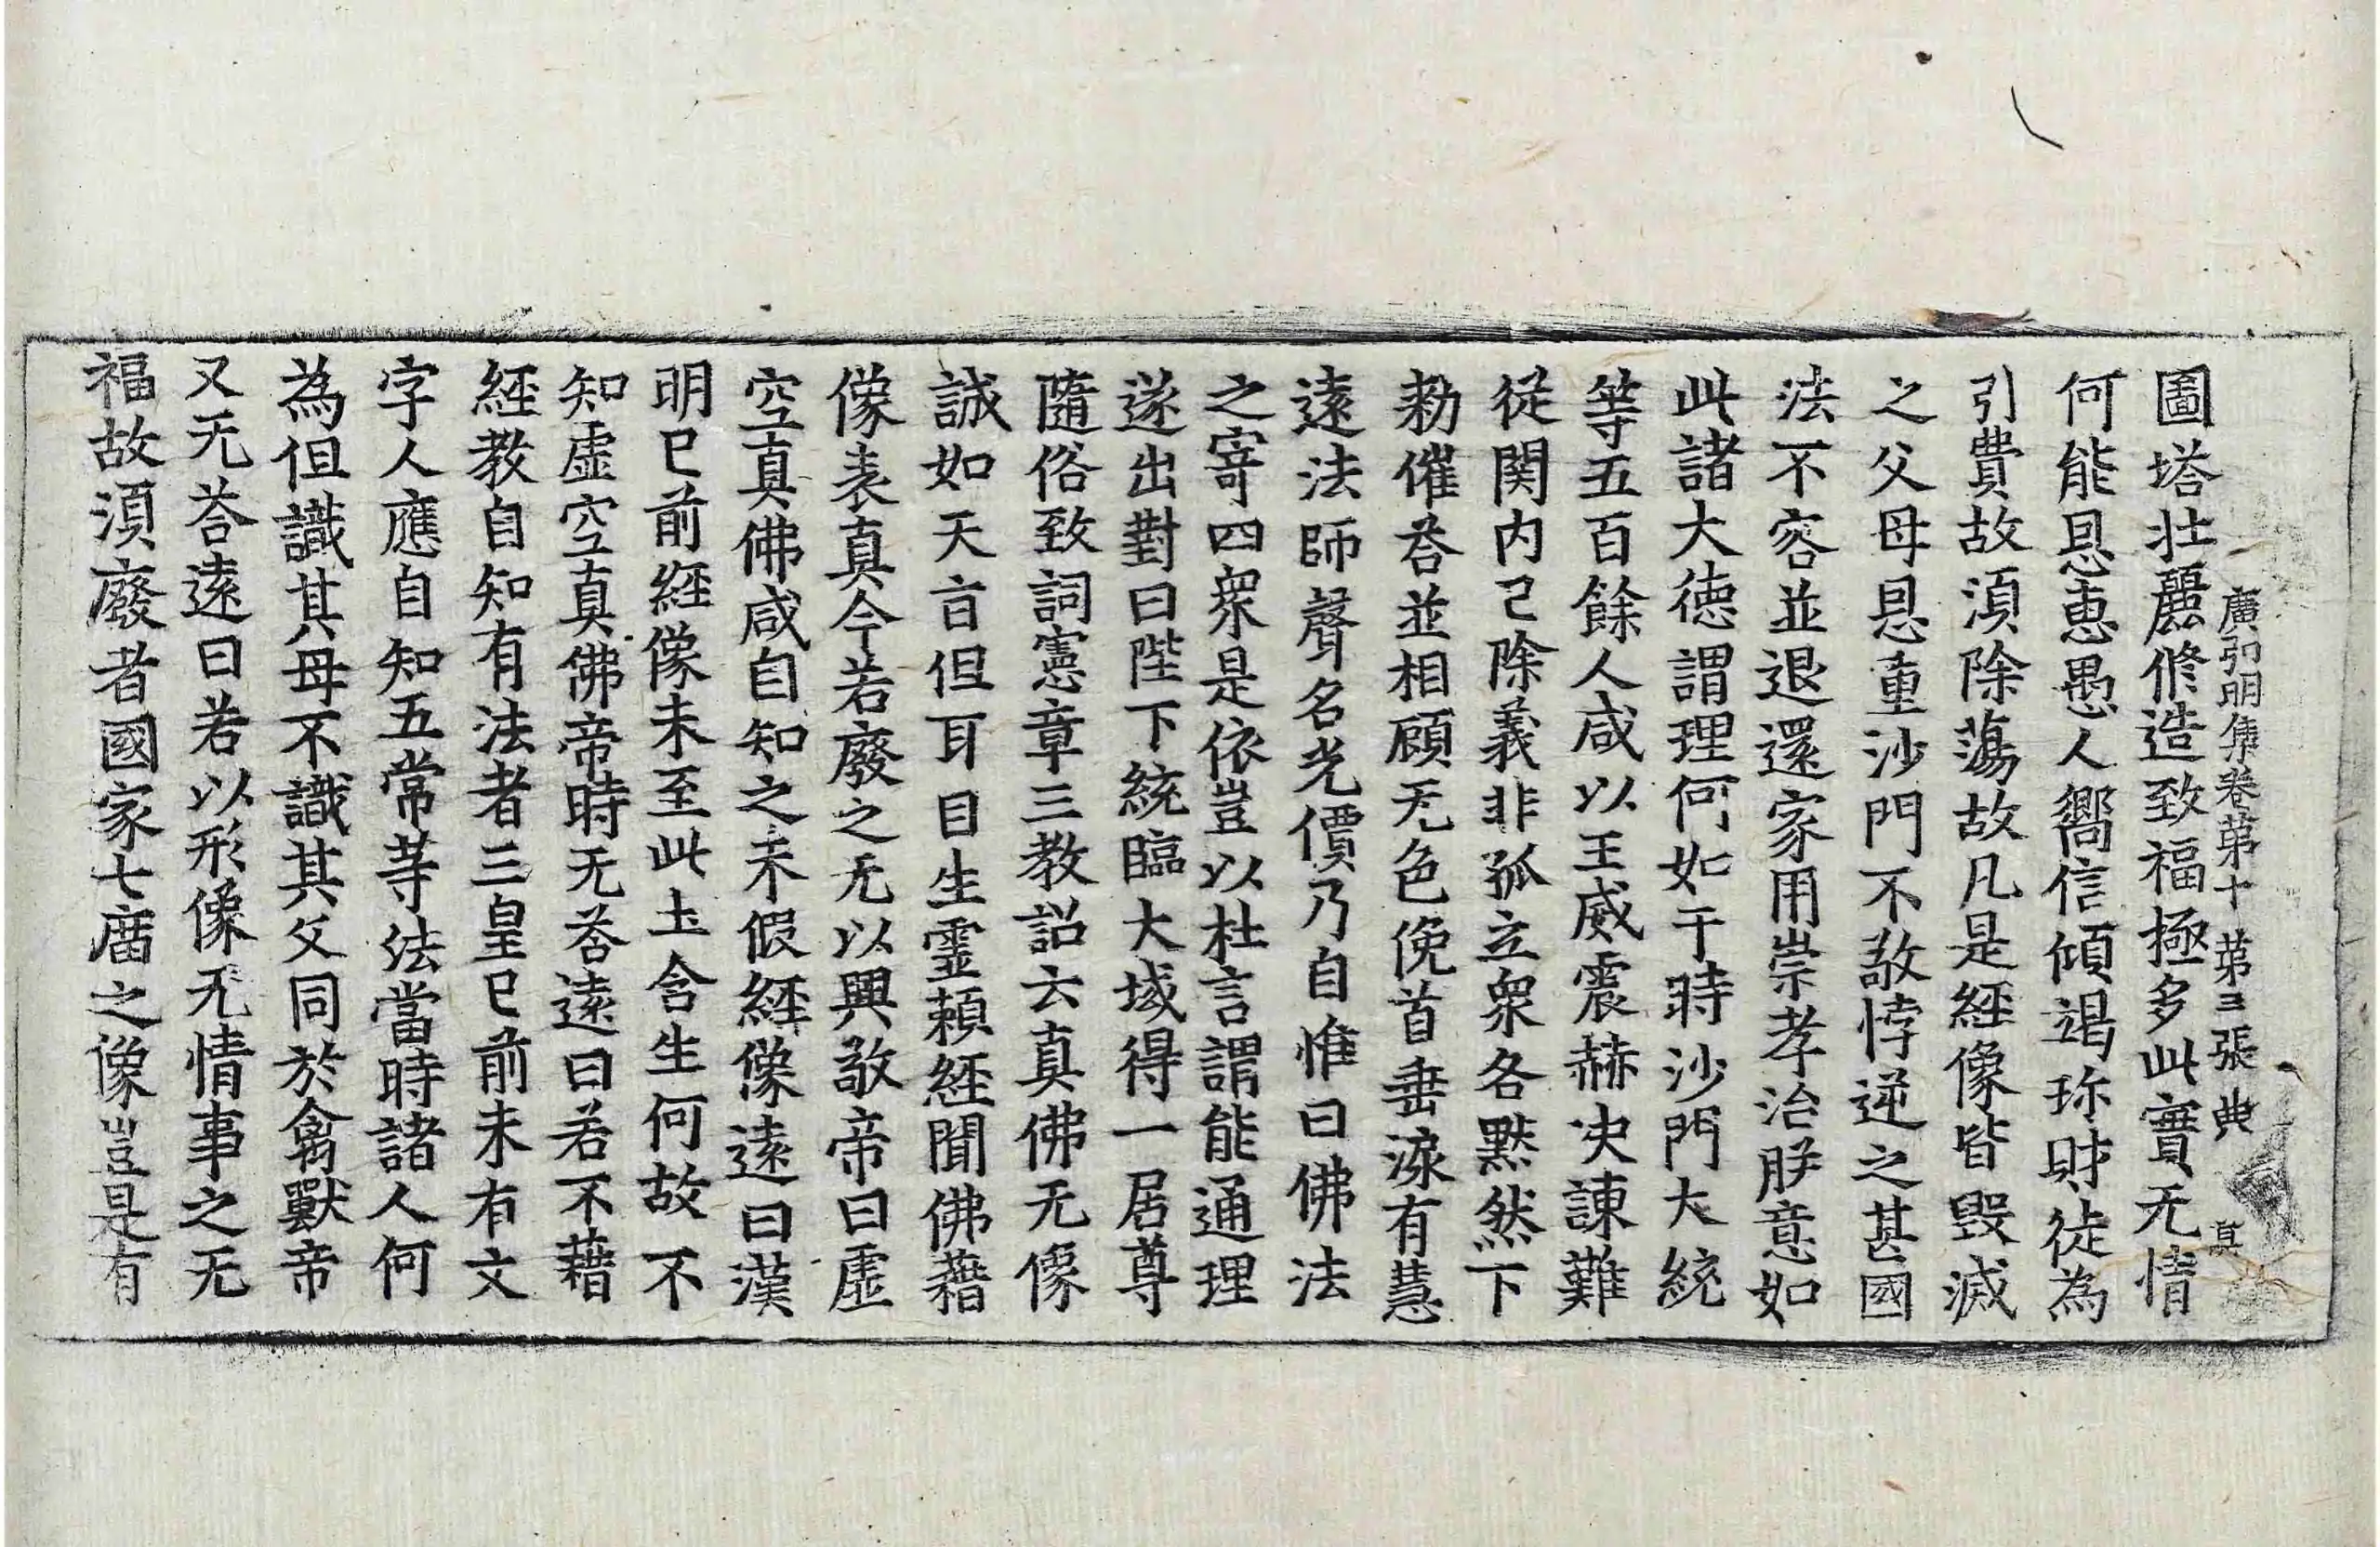 廣弘明集卷第十 第三張 典
圖塔壯麗修造致福極多此實无情
何能恩惠愚人嚮信傾竭珎財徒為
引費故湏除蕩故凡是經像皆毀滅
之父母恩重沙門不敬悖逆之甚國
法不容並退還家用崇孝治朕意如
此諸大德謂理何如于時沙門大統
等五百餘人咸以王威震赫決諫難
從関内已除義非孤立衆各黙然下
勑催荅並相顧无色俛首垂淚有慧
遠法師聲名光價乃自惟曰佛法
之寄四衆是依豈以杜言謂能通理
遂出對曰陛下統臨大域得一居尊
隨俗致詞憲章三教詔云真佛无像
誠如天旨但耳目生靈頼經聞佛藉
像表真今若廢之无以興敬帝曰虛
空真佛咸自知之未假經像遠曰漢
明已前經像未至此土含生何故不
知虛空真佛帝時无荅遠曰若不藉
經教自知有法者三皇已前未有文
字人應自知五常等法當時諸人何
為但識其母不識其父同於禽獸帝
又无荅遠曰若以形像无情事之无
福故湏廢者國家七廟之像豈是有